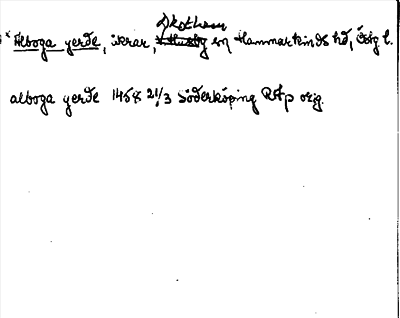 * Alboga gerde, åkrar, Skothem sn Hammarkinds hd, Ösg l.
alboga gerde 1458 21/3 Söderköping RAp orig.